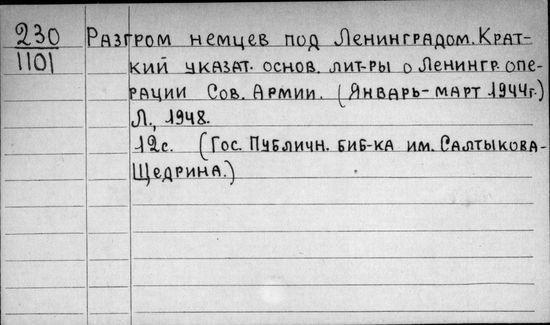 230 Разгром немцев под Ленинградом. Крат-
1101 кий указат. основ. лит-ры о Ленингр. опе-
рации Сов. Армии. (Январь-март 1944г.)
Л., 1948.
12с. (Гос. Публичн. биб-ка им. Салтыкова-
Щедрина.)